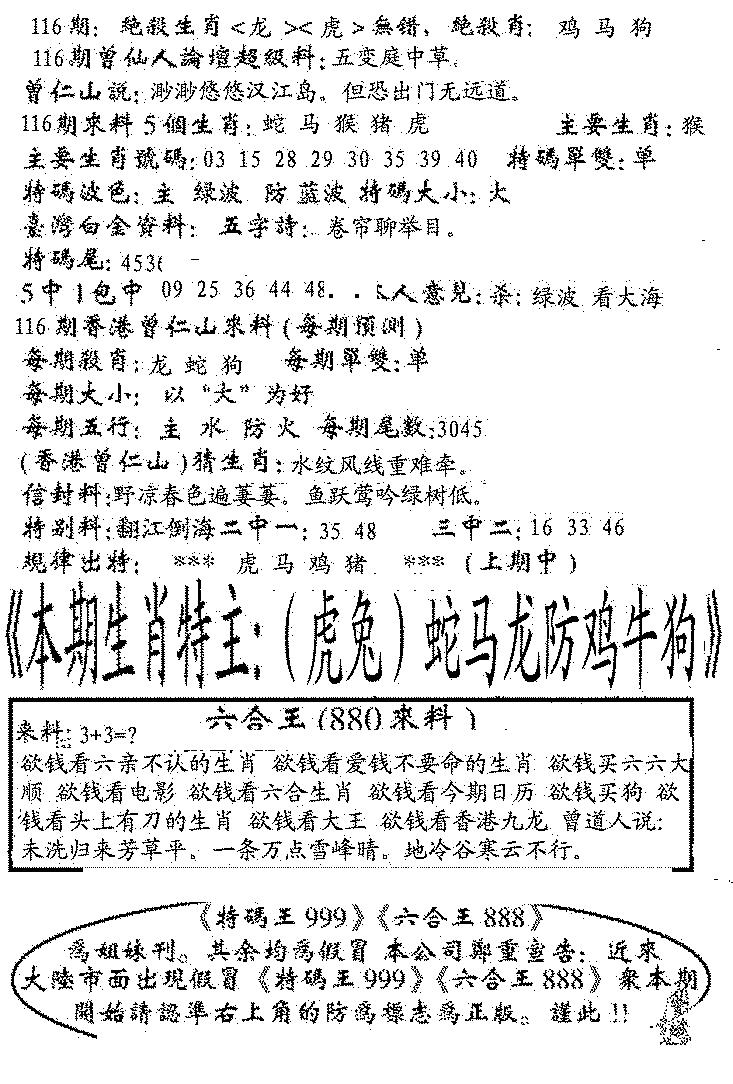 116期：绝殺生肖<龙><虎>無错，绝殺肖：鸡 马 狗
116期曾仙人論壇超級料：五变庭中草。
曾仁山説：渺渺悠悠汉江岛。但恐出门无远道。
116期來料5個生肖：蛇 马 猴 猪 虎 主要生肖：猴
主要生肖號碼：03 15 28 29 30 35 39 40 特碼單雙：单
特碼波色：主 绿波 防 蓝波 特碼大小：大
臺灣白金資料： 五字詩：卷帘聊举目。
特碼尾：453
5中1包中 09 25 36 44 48. . 人意見：杀：绿波 看大海
116期香港曾仁山來料(每期預測)
每期殺肖：龙 蛇 狗 每期單雙：单
每期大小： 以“大”为好
每期五行： 主 水 防 火 每期尾数：3045
(香港曾仁山)猜生肖：水纹风线重难牵。
信封料：野凉春色遍萋萋。鱼跃莺吟绿树低。
特别料：翻江倒海二中一：35 48 三中二：16 33 46
規律出特： *** 虎 马 鸡 猪 *** (上期中)
《本期生肖特主：(虎兔)蛇马龙防鸡牛狗》
六合王(880來料)
来料：3+3=?
欲钱看六亲不认的生肖 欲钱看爱钱不要命的生肖 欲钱买六六大
顺 欲钱看电影 欲钱看六合生肖 欲钱看今期日历 欲钱买狗 欲
钱看头上有刀的生肖 欲钱看大王 欲钱看香港九龙 曾道人说：
未洗归来芳草平。一条万点雪峰晴。地冷谷寒云不行。
《特碼王999》《六合王888》
爲姐妹刊。其余均爲假冒 本公司鄭重宣告：近來
大陸市面出現假冒《特碼王999》《六合王888》衆本期
開始請認準右上角的防爲標志爲正版。謹此!!